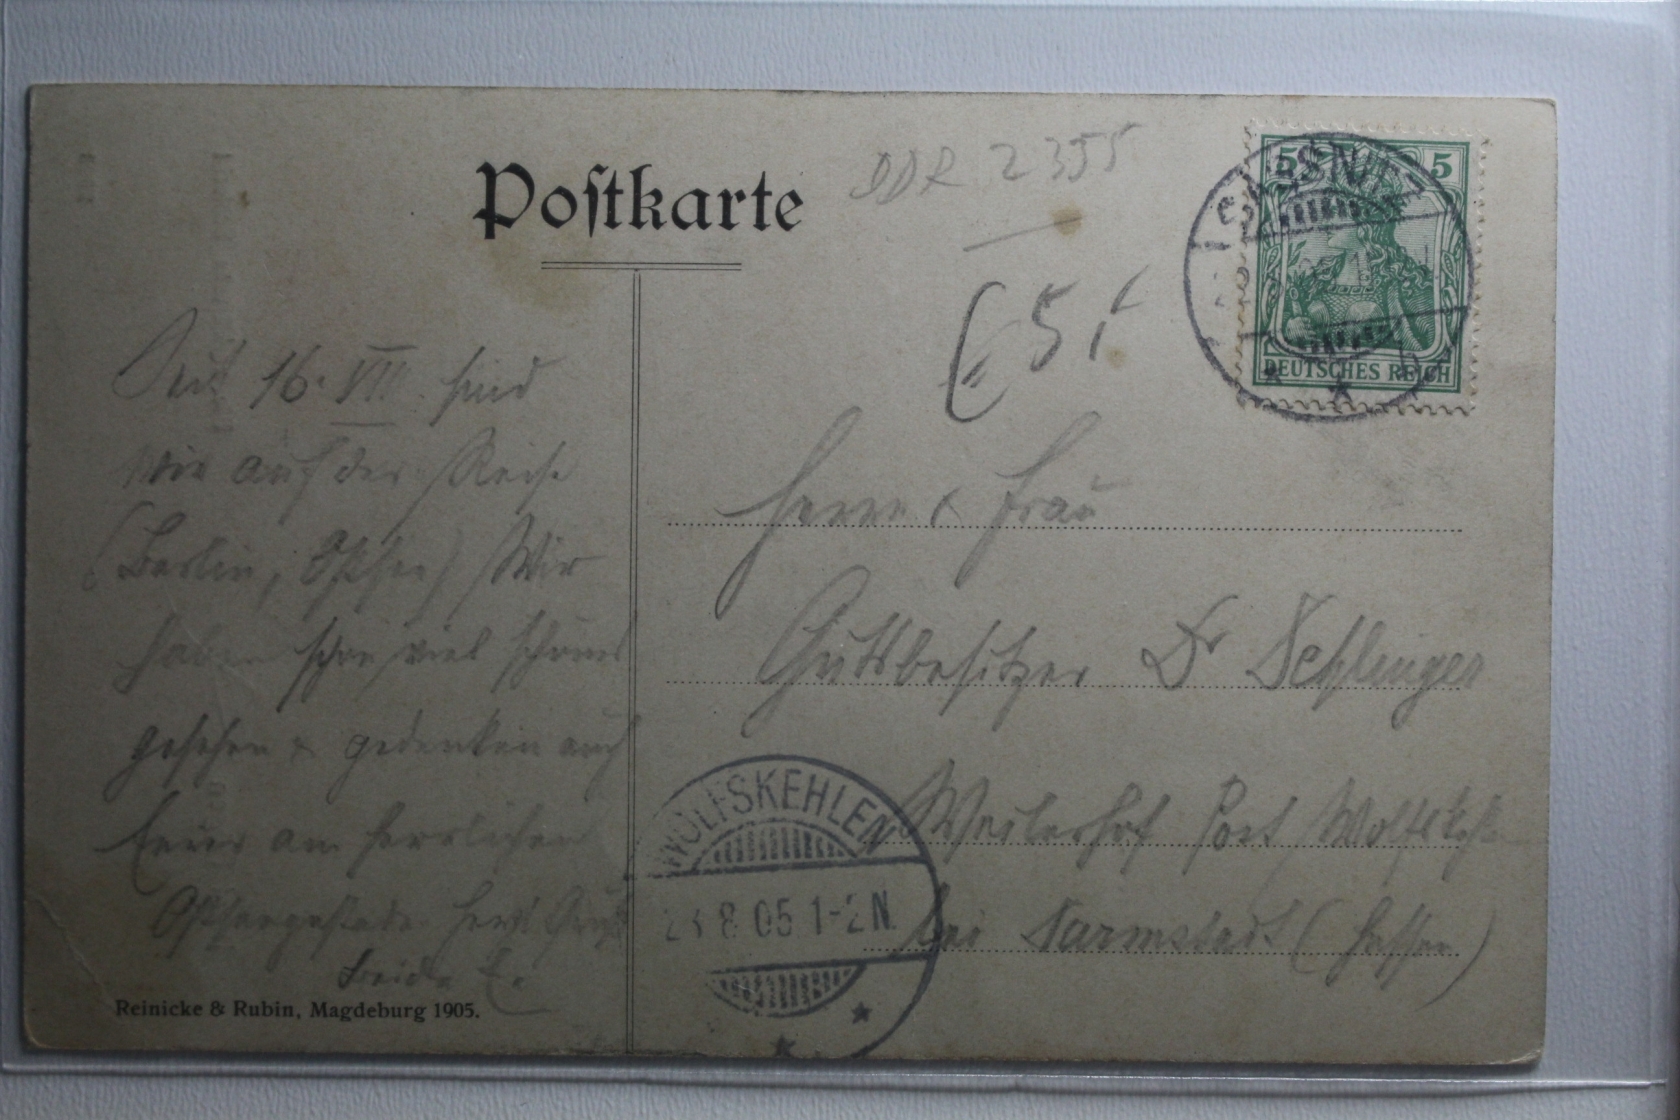 Postkarte
DDR 2355
€ 5,-
5 5
DEUTSCHES REICH
SASSNITZ
Seit 16. VII. sind
wir auf der Reise
(Berlin, Ostsee) Wir
haben schon viel schönes
gesehen & gedenken auch
Eurer am herrlichen
Ostseegestade. Herzl. Gruß
Beide
Reinicke & Rubin, Magdeburg 1905.
Herrn & Frau
Gutsbesitzer Dr
Weilerhof Post Wolfskehlen
bei Darmstadt (Hessen)
WOLFSKEHLEN
23 8 05 1-2 N.